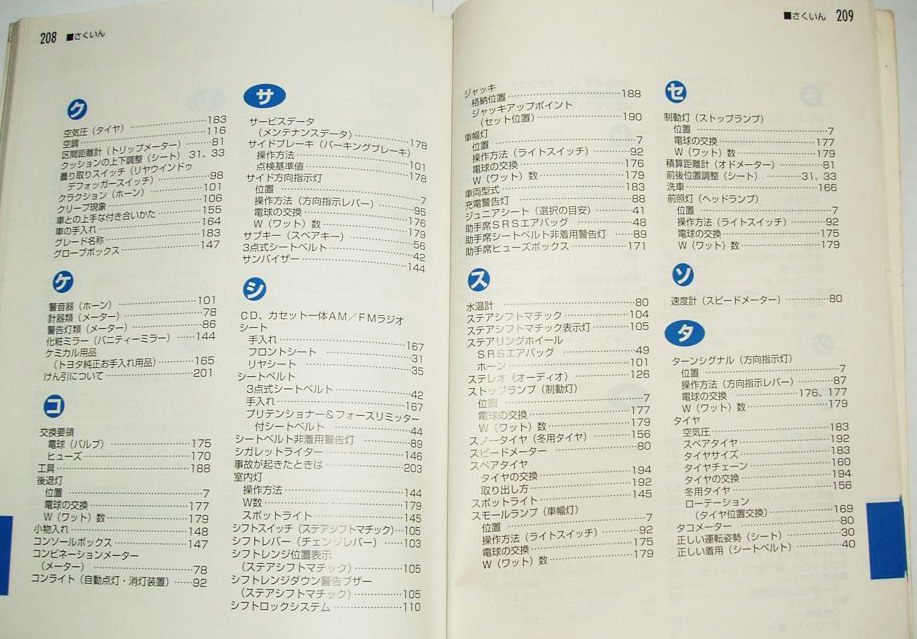 208 ■さくいん
ク
空気圧（タイヤ）……183
空調……116
区間距離計（トリップメーター）……81
クッションの上下調整（シート）31、33
曇り取りスイッチ（リヤウインドゥ
デフォッガースイッチ）……98
クラクション（ホーン）……101
クリープ現象……106
車との上手な付き合いかた……155
車の手入れ……164
グレード名称……183
グローブボックス……147
ケ
警音器（ホーン）……101
計器類（メーター）……78
警告灯類（メーター）……86
化粧ミラー（バニティーミラー）……144
ケミカル用品
（トヨタ純正お手入れ用品）……165
けん引について……201
コ
交換要領
電球（バルブ）……175
ヒューズ……170
工具……188
後退灯
位置……7
電球の交換……177
W（ワット）数……179
小物入れ……148
コンソールボックス……147
コンビネーションメーター
（メーター）……78
コンライト（自動点灯・消灯装置）……92
サ
サービスデータ
（メンテナンスデータ）……178
サイドブレーキ（パーキングブレーキ）
操作方法……101
点検基準値……178
サイド方向指示灯
位置……7
操作方法（方向指示レバー）……95
電球の交換……176
W（ワット）数……179
サブキー（スペアキー）……56
3点式シートベルト……42
サンバイザー……144
シ
CD、カセット一体AM／FMラジオ
シート
手入れ……167
フロントシート……31
リヤシート……35
シートベルト
3点式シートベルト……42
手入れ……167
プリテンショナー＆フォースリミッター
付シートベルト……44
シートベルト非着用警告灯……89
シガレットライター……146
事故が起きたときは……203
室内灯
操作方法……144
W数……179
スポットライト……145
シフトスイッチ（ステアシフトマチック）…105
シフトレバー（チェンジレバー）……103
シフトレンジ位置表示
（ステアシフトマチック）……105
シフトレンジダウン警告ブザー
（ステアシフトマチック）……105
シフトロックシステム……110
■さくいん 209
ジャッキ
格納位置……188
ジャッキアップポイント
（セット位置）……190
車幅灯
位置……7
操作方法（ライトスイッチ）……92
電球の交換……176
W（ワット）数……179
車両型式……183
充電警告灯……88
ジュニアシート（選択の目安）……41
助手席SRSエアバッグ……48
助手席シートベルト非着用警告灯……89
助手席ヒューズボックス……171
ス
水温計……80
ステアシフトマチック……104
ステアシフトマチック表示灯……105
ステアリングホイール
SRSエアバッグ……49
ホーン……101
ステレオ（オーディオ）……126
ストップランプ（制動灯）
位置……7
電球の交換……177
W（ワット）数……179
スノータイヤ（冬用タイヤ）……156
スピードメーター……80
スペアタイヤ
タイヤの交換……194
取り出し方……192
スポットライト……145
スモールランプ（車幅灯）
位置……7
操作方法（ライトスイッチ）……92
電球の交換……175
W（ワット）数……179
セ
制動灯（ストップランプ）
位置……7
電球の交換……177
W（ワット）数……179
積算距離計（オドメーター）……81
前後位置調整（シート）……31、33
洗車……166
前照灯（ヘッドランプ）
位置……7
操作方法（ライトスイッチ）……92
電球の交換……175
W（ワット）数……179
ソ
速度計（スピードメーター）……80
タ
ターンシグナル（方向指示灯）
位置……7
操作方法（方向指示レバー）……87
電球の交換……176、177
W（ワット）数……179
タイヤ
空気圧……183
スペアタイヤ……192
タイヤサイズ……183
タイヤチェーン……160
タイヤの交換……194
冬用タイヤ……156
ローテーション
（タイヤ位置交換）……169
タコメーター……80
正しい運転姿勢（シート）……30
正しい着用（シートベルト）……40